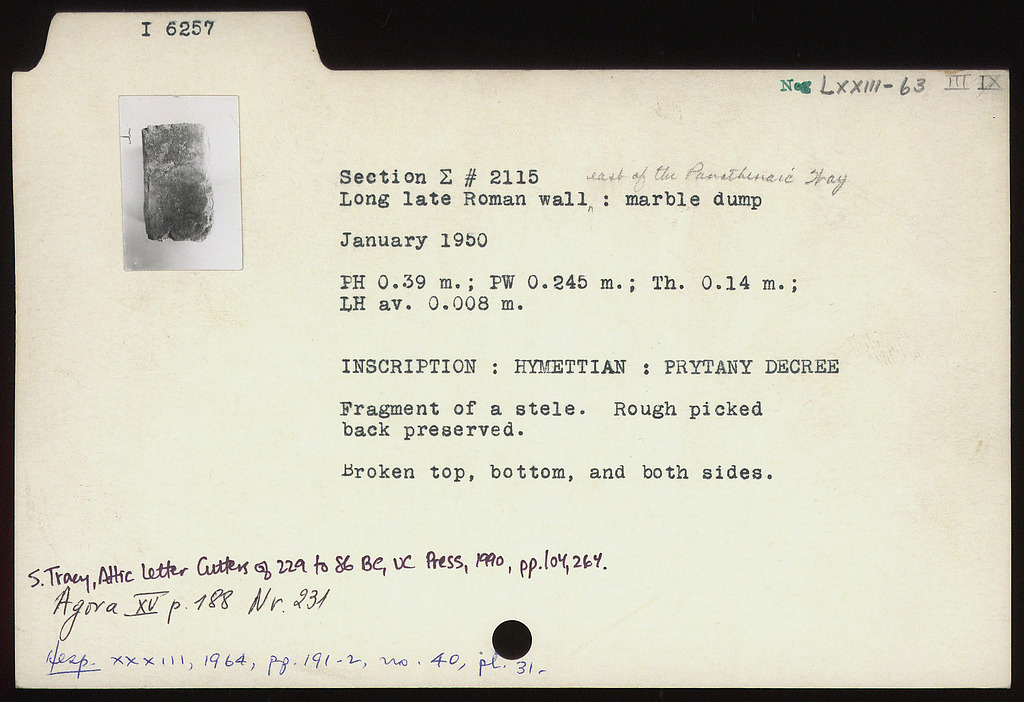 I 6257
Neg LXXIII-63 III IX
Section Σ # 2115 east of the Panathenaic Way
Long late Roman wall : marble dump
January 1950
PH 0.39 m.; PW 0.245 m.; Th. 0.14 m.;
LH av. 0.008 m.
INSCRIPTION : HYMETTIAN : PRYTANY DECREE
Fragment of a stele. Rough picked
back preserved.
Broken top, bottom, and both sides.
S. Tracy, Attic Letter Cutters of 229 to 86 BC, UC Press, 1990, pp. 104, 264.
Agora XV p. 188 Nr. 231
Hesp. XXXIII, 1964, pp. 191-2, no. 40, pl. 31.